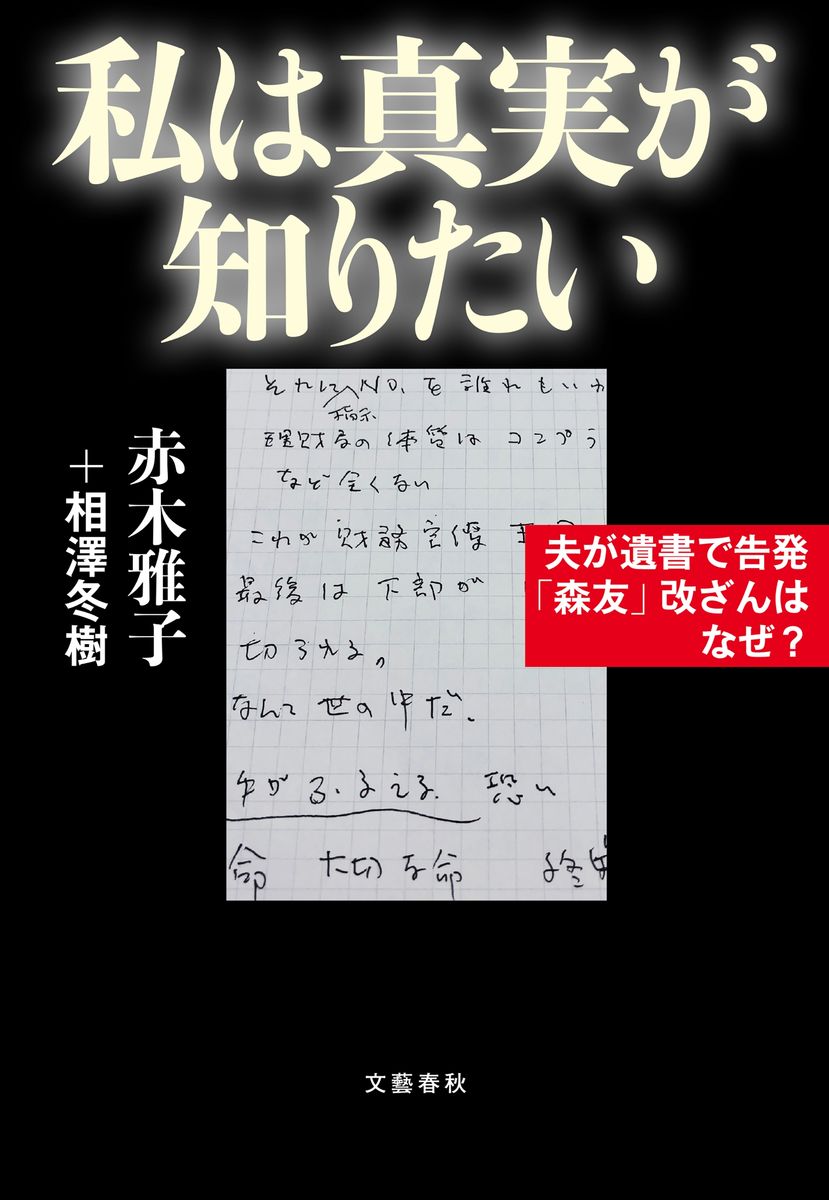 私は真実が
知りたい
赤木雅子
+相澤冬樹
それにNO.を誰れもいわ
指示
理財局の体質は コンプラ
など全くない
これが財務官僚
最後は下部が
切られる。
なんて世の中だ.
手がふるえる. 恐い
命 大切な命 終
夫が遺書で告発
「森友」改ざんは
なぜ?
文藝春秋